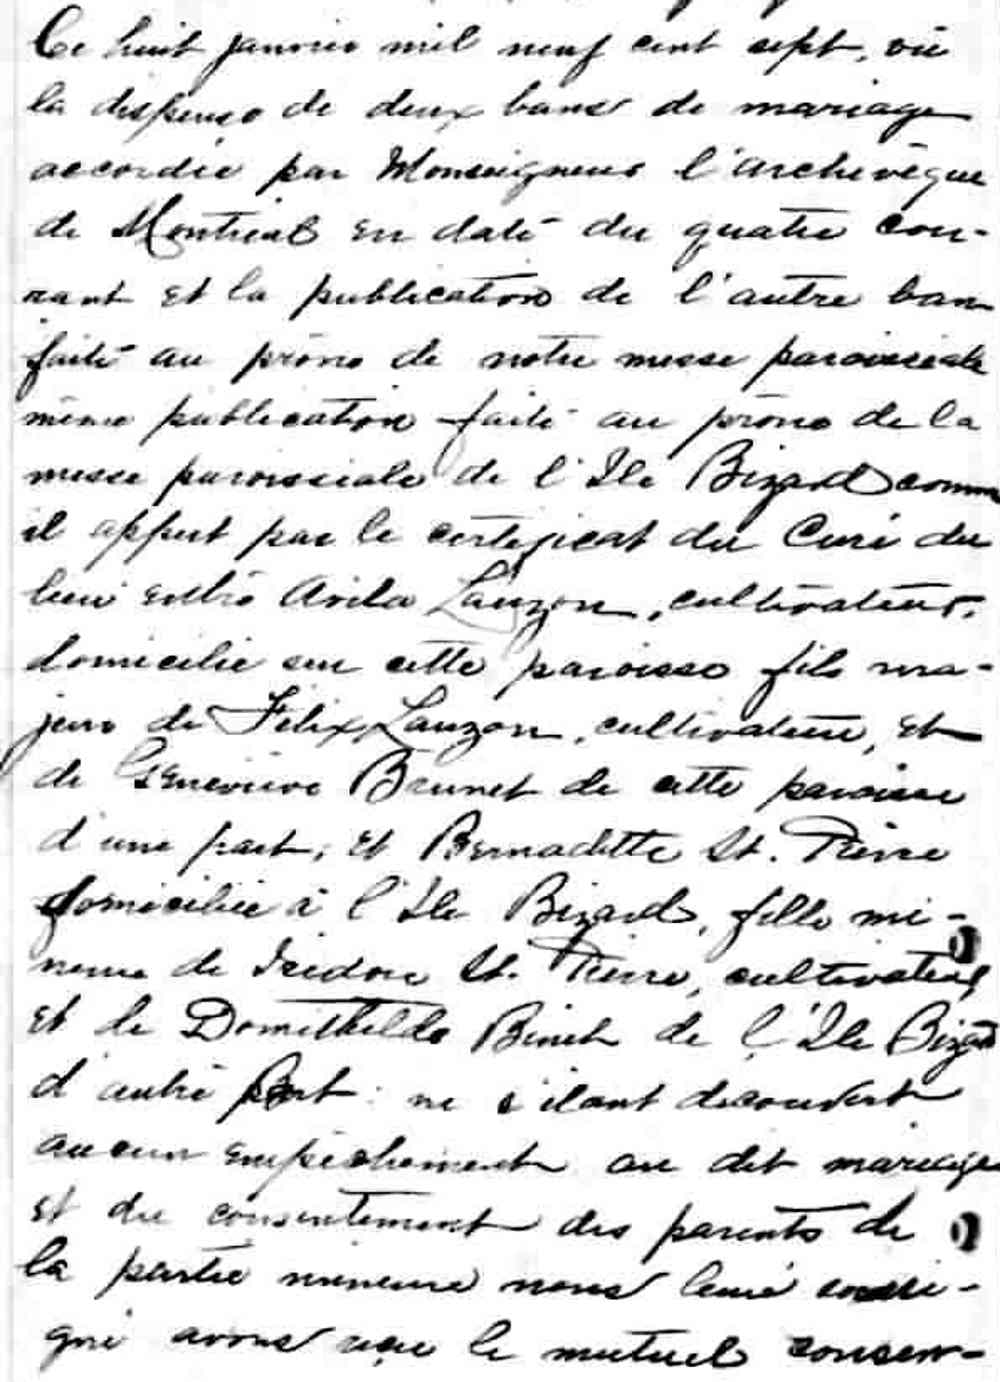 Ce huit janvier mil neuf cent sept, vu
la dispense de deux bans de mariage
accordée par Monseigneur l'archevêque
de Montréal en date du quatre cou-
rant et la publication de l'autre ban
faite au prône de notre messe paroissiale
même publication faite au prône de la
messe paroissiale de l'Ile Bizard comme
il appert par le certificat du Curé du
lieu entre Avila Lauzon, cultivateur,
domicilié en cette paroisse fils ma-
jeur de Félix Lauzon, cultivateur, et
de Geneviève Brunet de cette paroisse
d'une part; et Bernadette St. Pierre
domiciliée à l'Ile Bizard, fille mi-
neure de Isidore St. Pierre, cultivateur,
et de Domithilde Binet de l'Ile Bizard
d'autre part: ne s'étant découvert
aucun empêchement au dit mariage
et du consentement des parents de
la partie mineure nous curé soussi-
gné avons reçu le mutuel consen-